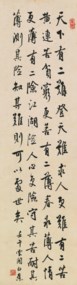 天下有二難登天難求人更難有二苦
黄連苦貧窮更苦有二薄春冰薄人情
更薄有二險江湖險人心更險其苦耐其
薄測其險可以處世矣